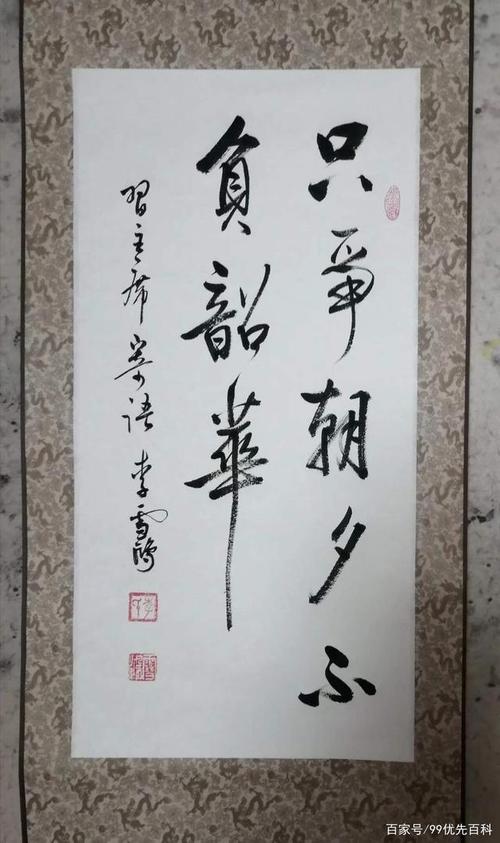 只爭朝夕不
負韶華
習主席寄语 李雪鴻
百家号/99优先百科